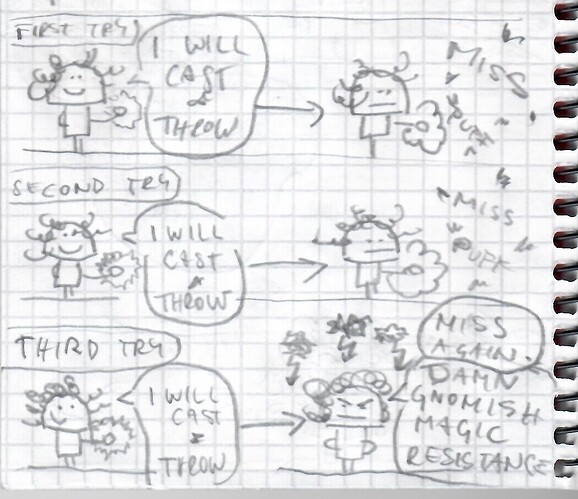 FIRST TRY
I WILL
CAST
&
THROW
MISS
PUFF
SECOND TRY
I WILL
CAST
&
THROW
MISS
PUFF
THIRD TRY
I WILL
CAST
&
THROW
MISS
AGAIN.
DAMN
GNOMISH
MAGIC
RESISTANCE